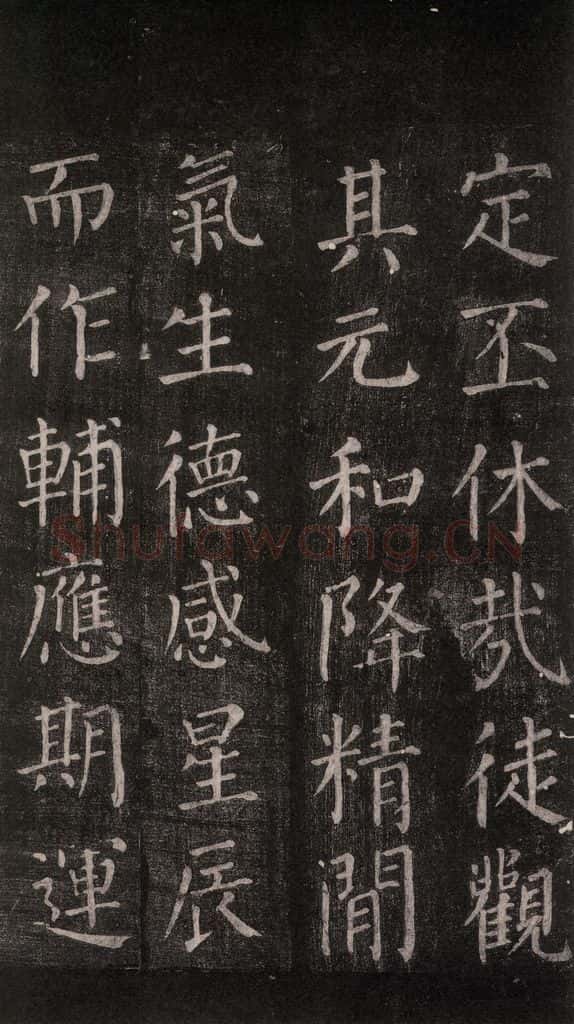 定丕休哉徒觀
其元和降精閒
氣生德感星辰
而作輔應期運
Shufawang.CN